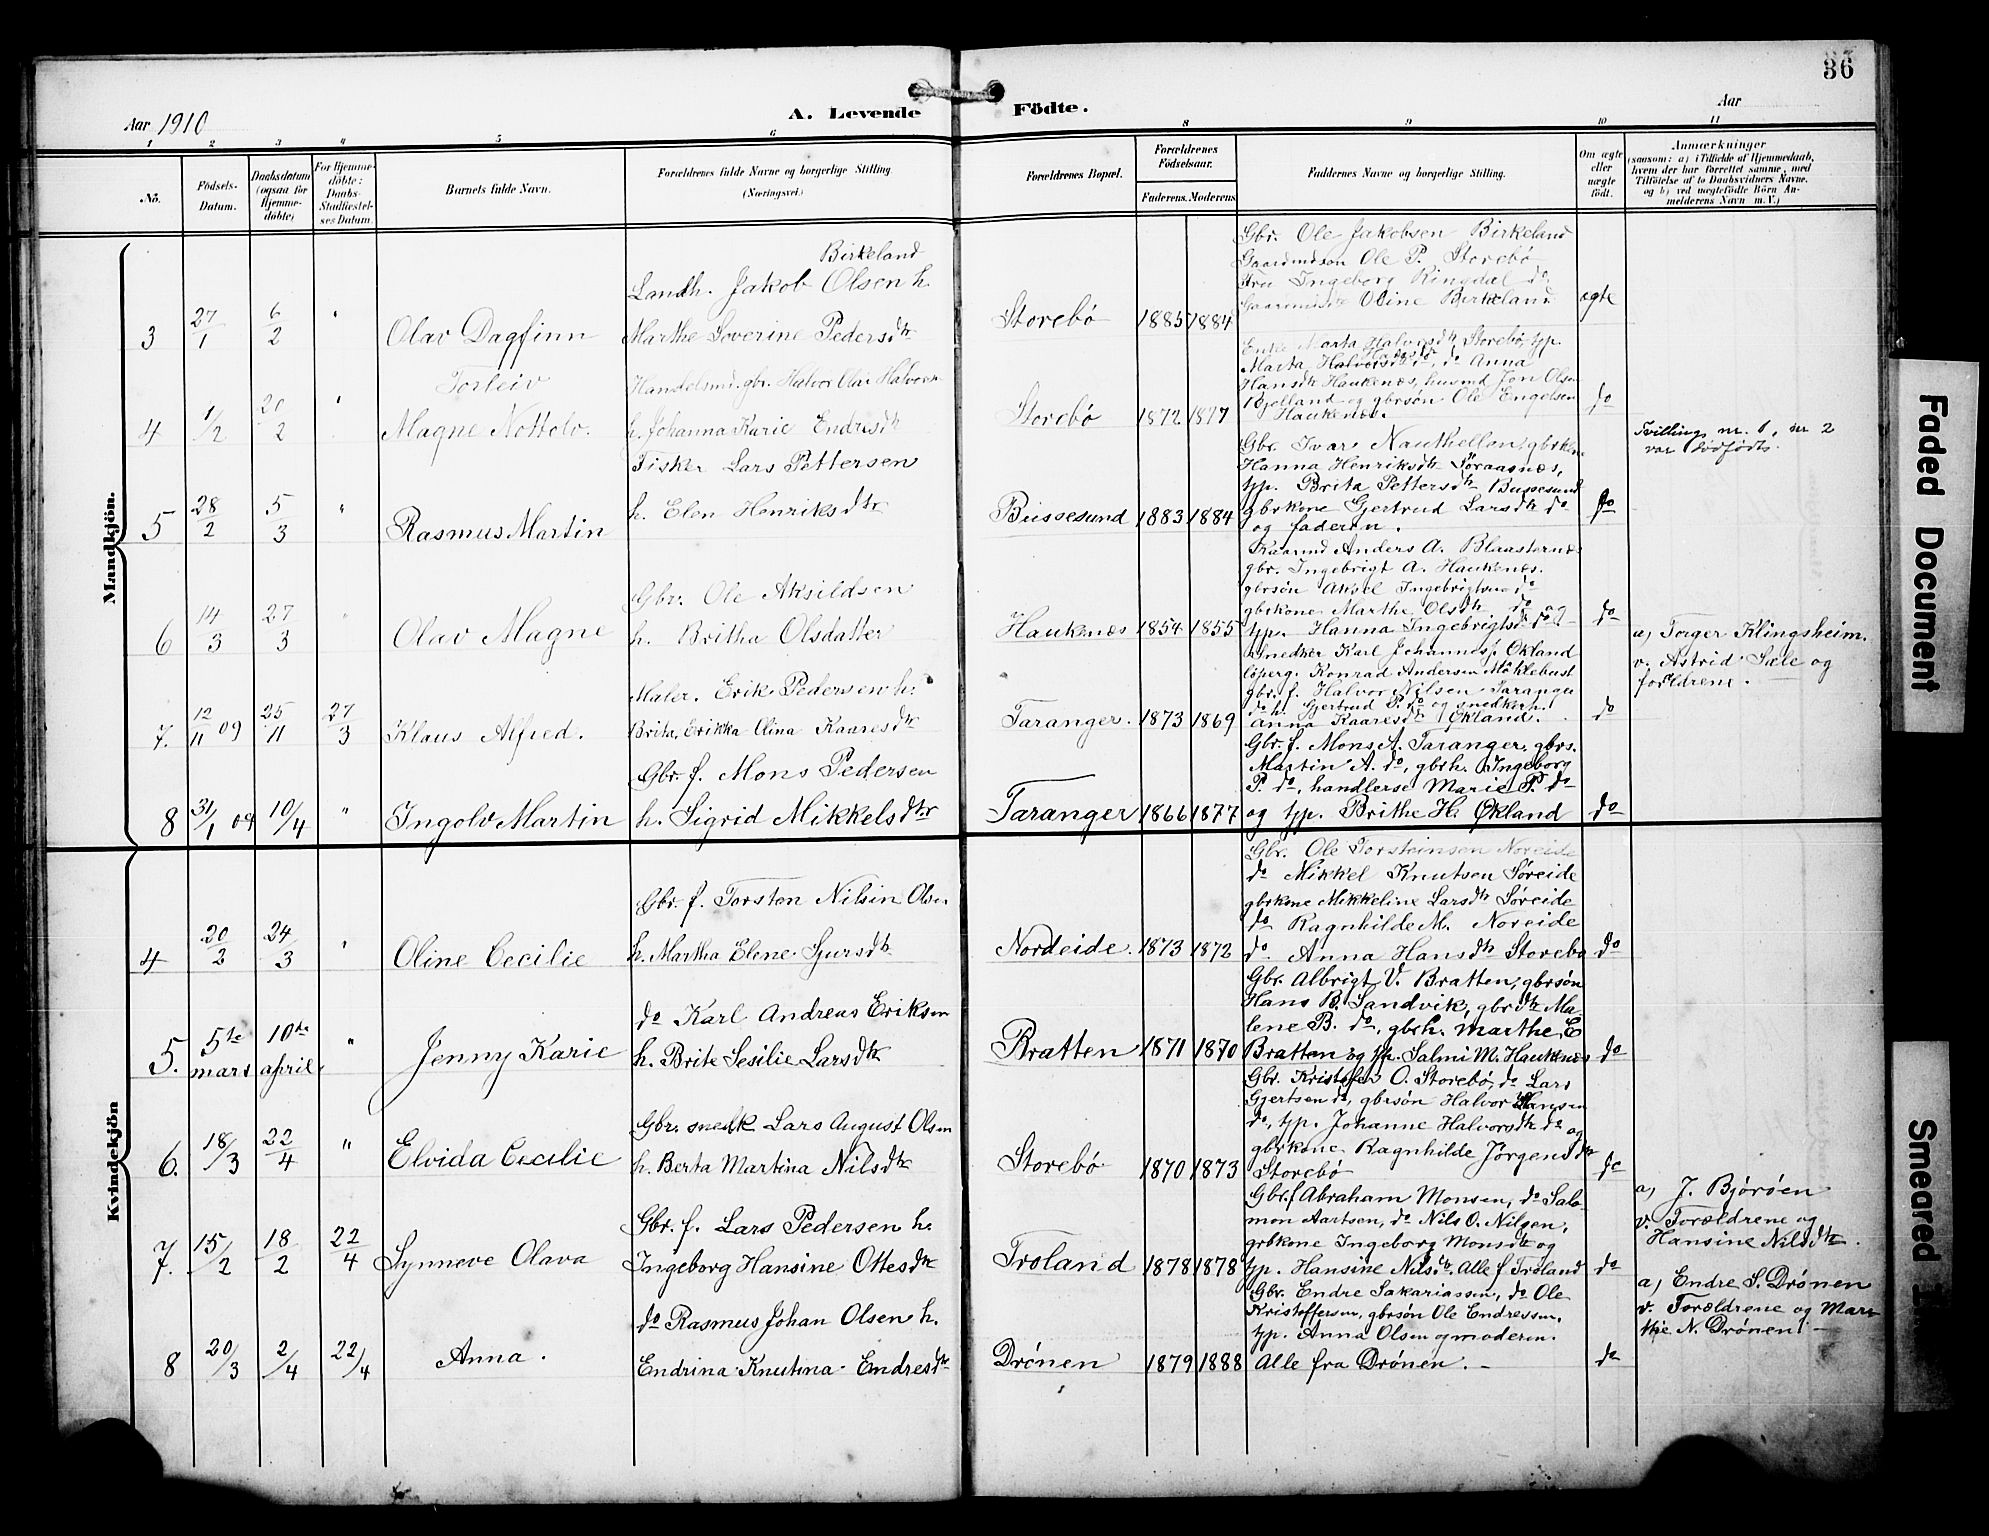 36
Aar 1910
A. Levende Födte.
Aar
1 2 3 4 5 6 8 9 10 11
No.
Födsels-Datum.
Daabsdatum (ogsaa for Hjemmedöbte)
For Hjemmedöbte: Daabs-Stadfæstelses Datum.
Barnets fulde Navn.
Forældrenes fulde Navne og borgerlige Stilling. (Næringsvei.)
Forældrenes Bopæl.
Forældrenes Födselsaar.
Faderens. Moderens
Faddernes Navne og borgerlige Stilling.
Om ægte eller uægte födt.
Anmærkninger (saasom: a) i Tilfælde af Hjemmedaab, hvem der har forrettet samme, med Tilföielse af to Daabsvidners Navne, og b) ved uægtefödte Börn Anmelderens Navn m. V.)
Mandkjön.
3 27/1 6/2 " Olav Dagfinn
Birkeland
Landh. Jakob Olsen h.
Marthe Severine Pedersdtr
Storebö 1885 1884
Gbr. Ole Jakobsen Birkeland
Gaardmdsön Ole P. Storebö
Fru Ingeborg Ringdal do
Oline Birkeland
ægte
4 1/2 20/2 " Torleiv
Magne Nottolv.
Handelsmd. gbr. Halvor Olai Halvorsen
h. Johanna Karie Endresdtr
Storebö 1872 1877
Enke Marta Halvorsdtr Storebö, tjp.
Marta Halvorsdtr do, do Anna
Hansdtr Haukenæs, husmd Jon Olsen
Bjelland og gbrsön Ole Engelsen
Haukenæs.
do
Tvilling nr. 1, nr 2
var dödfödt.
5 28/2 5/3 " Rasmus Martin
Fisker Lars Pettersen
h. Elen Henriksdtr
Bussesund 1883 1884
Gbr. Ivar Nauthellon, gbrkone
Hanna Henriksdtr Söraasnæs,
tjp. Brita Pettersdtr Bussesund
gbrkone Gjertrud Larsdtr do
og faderen.
do
6 14/3 27/3 " Olav Magne
Gbr. Ole Aksildsen
h. Britha Olsdatter
Haukenæs 1854 1855
Kaarmd Anders A. Blaasternæs
gbr. Ingebrigt A. Haukenæs.
gbrsön Aksel Ingebrigtsen do
gbrkone Marthe Olsdtr do og
tjp. Hanna Ingebrigtsd. do
do
7. 12/11 09 25/11 27/3 Klaus Alfred.
Maler. Erik Pedersen h.
Brita, Erikka Olina Kaaresdtr
Taranger. 1873 1869
Snedker Karl Johannes. Økland
löperg. Konrad Andersen Mÿklebust
gbr. f. Halvor Nilsen Taranger
do h. Gjertrud P. do og snedkerh.
Anna Kaaresdtr Økland.
do
a) Torger Klingsheim.
v. Astrid Sæle og
forældrene.
8 31/1 09 10/4 " Ingolv Martin
Gbr. f. Mons Pedersen
h. Sigrid Mikkelsdtr
Taranger 1866 1877
Gbr. f. Mons A. Taranger, gbrs.
Martin A. do, gbrh. Ingeborg
P. do, handlerske Marie P. do
og tjp. Brithe H. Økland
do
Kvindekjön
4 20/2 24/3 " Oline Cecilie
Gbr. f. Torsten Nilsin Olsen
h. Martha Elene Sjursdtr
Nordeide. 1873 1872
Gbr. Ole Torsteinsen Noreide
do Mikkel Knutsen Söreide
gbrkone Mikkeline Larsdtr Söreide
do Ragnhilde M. Noreide
do. Anna Hansdtr Storebö
do
5. 5te mars 10de april " Jenny Karie
do Karl Andreas Eriksen
h. Brite Sesilie Larsdtr
Bratten 1871 1870
Gbr. Albrigt V. Bratten, gbrsön
Hans B. Sandvik, gbrdtr Ma-
lene B. do, gbrh. Marthe E
Bratten og tjp. Salmi M. Haukenæs
do
6. 18/3 22/4 " Elvida Cecilie
Gbr. snedk Lars August Olsen
h. Berta Martina Nilsdtr
Storebö 1870 1873
Gbr. Kristofer O. Storebö, do Lars
Gjertsen do, gbrsön Halvor Hansen
do, tjp. Johanne Halvorsdtr do og
gbrkone Ragnhilde Jörgensdtr
Storebö
do
7. 15/2 18/2 22/4 Synneve Olava
Gbr. f. Lars Pedersen h.
Ingeborg Hansine Ottesdtr
Troland 1878 1878
Gbr. f Abraham Monsen, do Salo-
mon Aartsen, do Nils O. Nilsen,
grbkone Ingeborg Monsdtr og
tjp. Hansine Nilsdtr. Alle f Troland
do
a) J. Björöen
v. Forældrene og
Hansine Nilsdtr.
8 20/3 2/4 22/4 Anna.
do Rasmus Johan Olsen h.
Endrina Knutina Endresdtr
Drönen 1879 1888
Gbr. Endre Sakariassen, do Ole
Kristoffersen, gbrsön Ole Endressen.
tjp. Anna Olsen og moderen.
Alle fra Drönen. -
do
a) Endre S. Drönen
v. Forældrene og Mar-
thje N. Drönen. -
Faded Document
Smeared